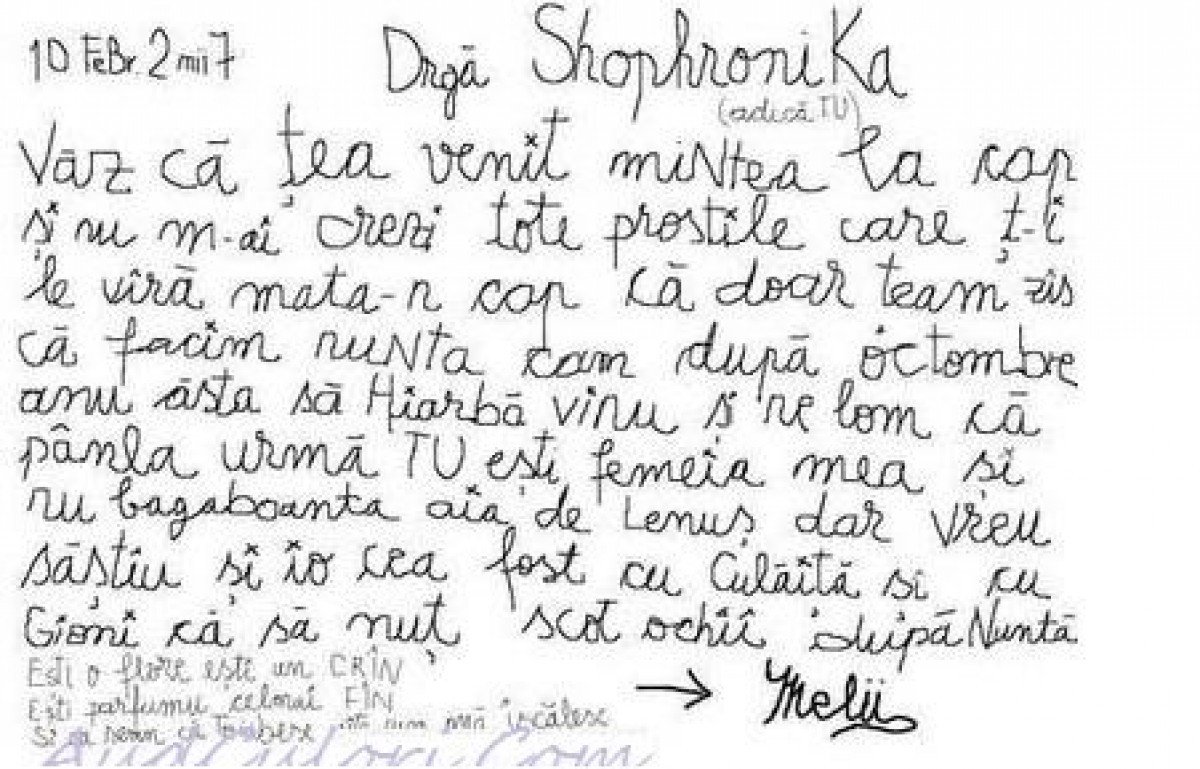 10 FeBr. 2 mii 7 Drgă ShophroniKa
(adică TU)
Văz că țea venit miNtea la cap
și nu m-ai crezi tote prostile care ț-i
le vîră mata-n cap că doar team zis
că facim nuNta cam după octombre
anu ăsta să Hiarbă vinu și ne lom că
pânla urmă TU ești femeia mea și
nu bagaboanta aia de Lenuș dar vreu
săștiu și io cea fost cu Culăiță și cu
Gioni că să nuț scot ochii după Nuntă
Ești o flore ești un CRÎN
Ești parfumu celmai FIN
Și iscălesc
→ Melii